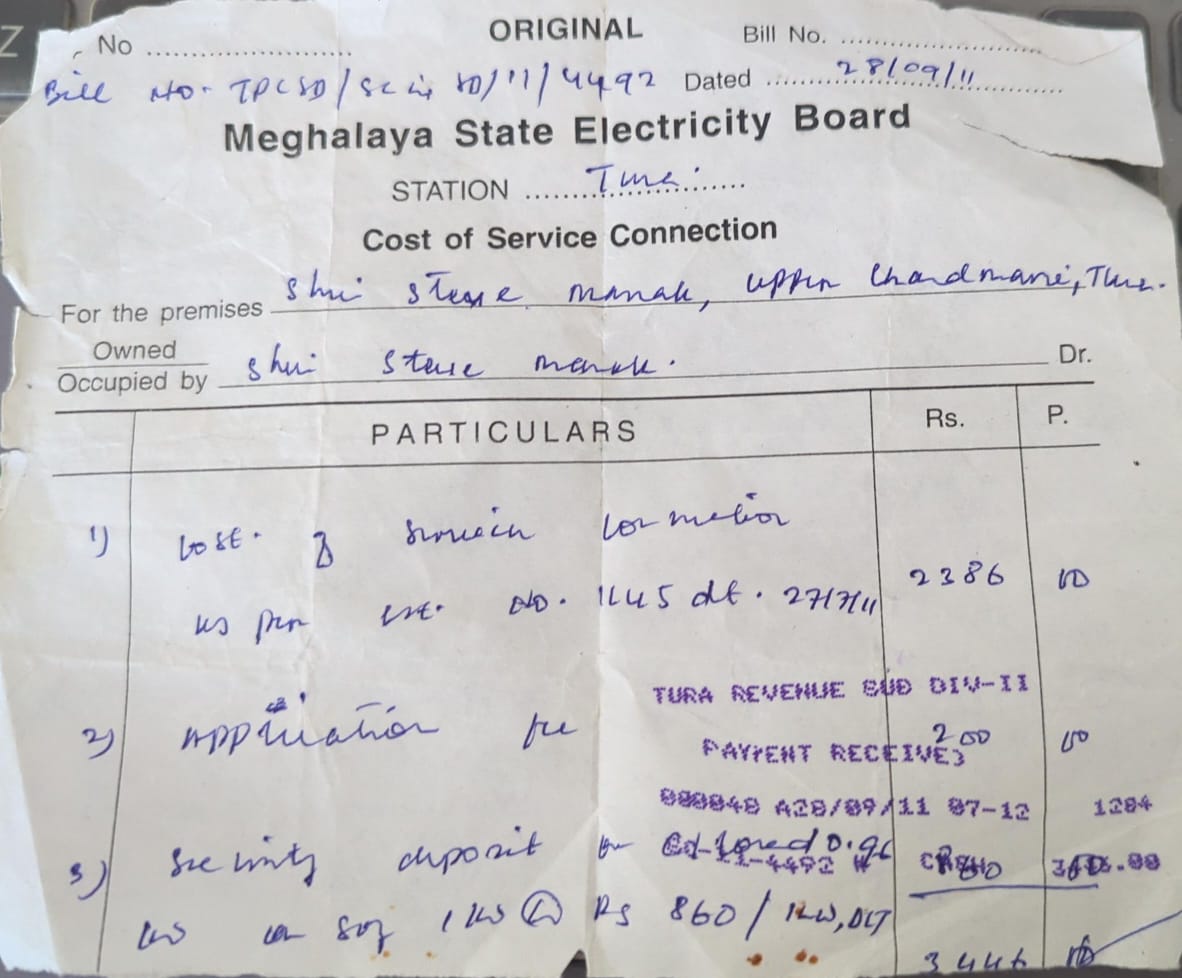 ORIGINAL
No ........................ Bill No. ........................
Bill No. TPCSD/ 10/11/4492 Dated 28/09/11
Meghalaya State Electricity Board
STATION Tura
Cost of Service Connection
For the premises Shri Marak, upper Chandmari, Tura.
Owned
Occupied by Shri Marak. Dr.
PARTICULARS Rs. P.
1) Cost of connection
as per est. No. 1145 dt. 27/7/11 2386 00
TURA REVENUE SUB DIV-II
2) Application fee 200 00
PAYMENT RECEIVED
000048 A28/09/11 07-12 1284
3) Security deposit on load 860
11-4492 CASH
1 KW @ Rs 860/ KW, DLT
3446